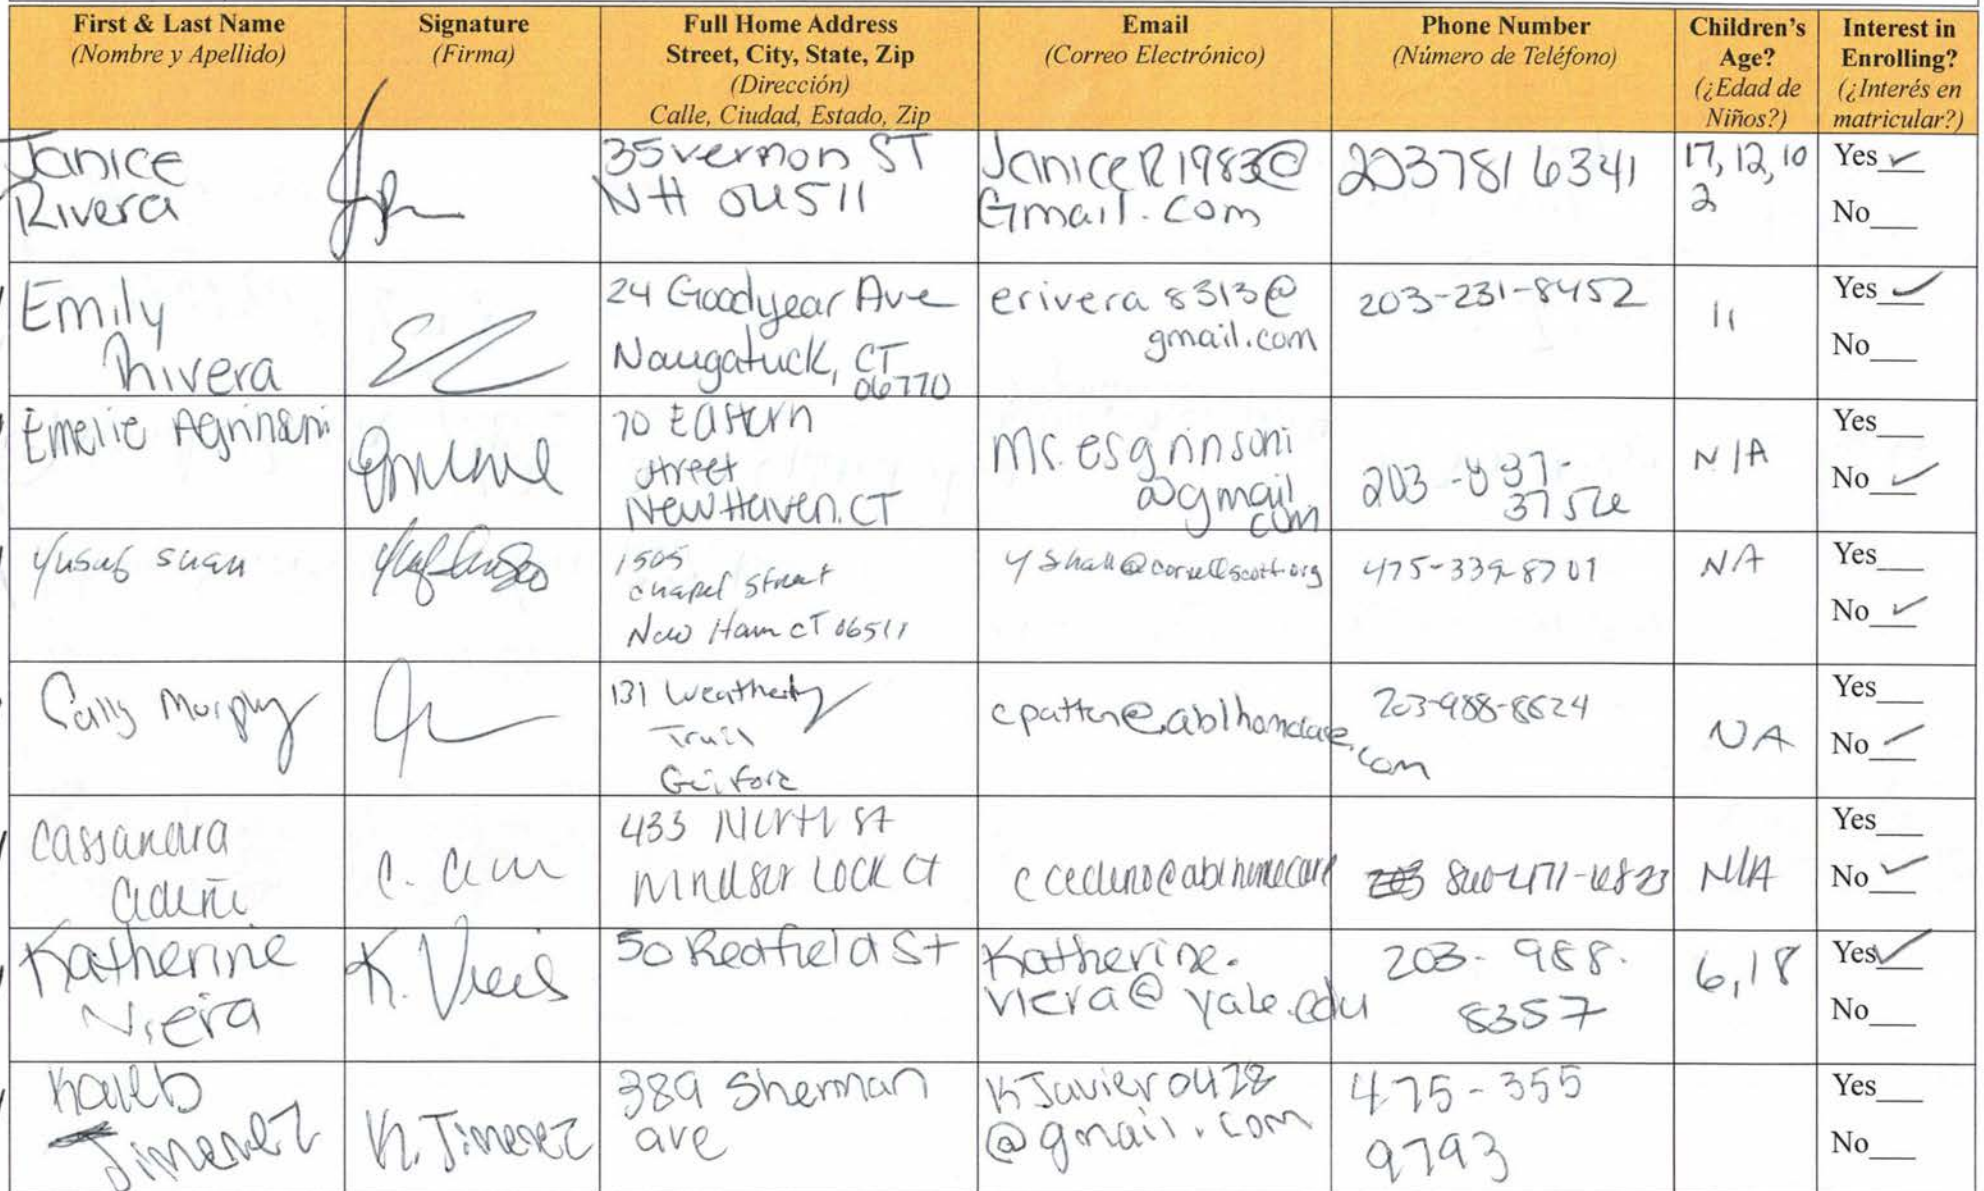 First & Last Name
(Nombre y Apellido)
Signature
(Firma)
Full Home Address
Street, City, State, Zip
(Dirección)
Calle, Ciudad, Estado, Zip
Email
(Correo Electrónico)
Phone Number
(Número de Teléfono)
Children's
Age?
(¿Edad de
Niños?)
Interest in
Enrolling?
(¿Interés en
matricular?)
Janice
Rivera
35 Vernon ST
NH 06511
JaniceR1983@
Gmail.com
2037816341
17, 12, 10
2
Yes ✓
No
Emily
Rivera
24 Goodyear Ave
Naugatuck, CT
06770
erivera8313@
gmail.com
203-231-8452
11
Yes ✓
No
Emelie
70 Eastern
street
New Haven. CT
@gmail
com
203
N/A
Yes
No ✓
Yusuf
1505
chapel street
New CT 06511
475-339-8701
NA
Yes
No ✓
Murphy
131
Trail
cpatten@ablhomecare.
com
203-988-8624
NA
Yes
No ✓
Cassandra
433 North St
Windsor Lock CT
N/A
Yes
No ✓
Katherine
Viera
K.
50 Redfield St
Katherine.
viera@yale.edu
203-988.
8357
6, 18
Yes ✓
No
Kaleb
Jimenez
K. Jimenez
389 Sherman
ave
@gmail.com
475-355
9793
Yes
No